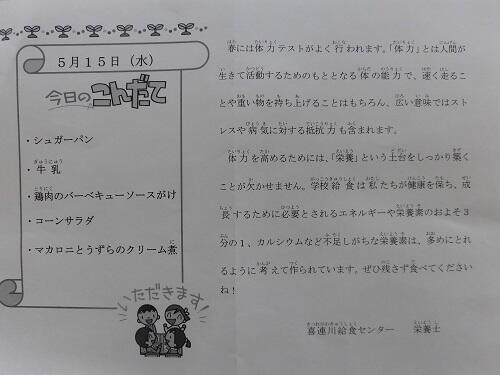 5月15日（水）
今日のこんだて
・シュガーパン
・牛乳
・鶏肉のバーベキューソースがけ
・コーンサラダ
・マカロニとうずらのクリーム煮
いただきます!
春には体力テストがよく行われます。「体力」とは人間が
生きて活動するためのもととなる体の能力で、速く走るこ
とや重い物を持ち上げることはもちろん、広い意味ではスト
レスや病気に対する抵抗力も含まれます。
体力を高めるためには、「栄養」という土台をしっかり築く
ことが欠かせません。学校給食は私たちが健康を保ち、成
長するために必要とされるエネルギーや栄養素のおよそ3
分の1、カルシウムなど不足しがちな栄養素は、多めにとれ
るように考えて作られています。ぜひ残さず食べてください
ね！
喜連川給食センター　栄養士